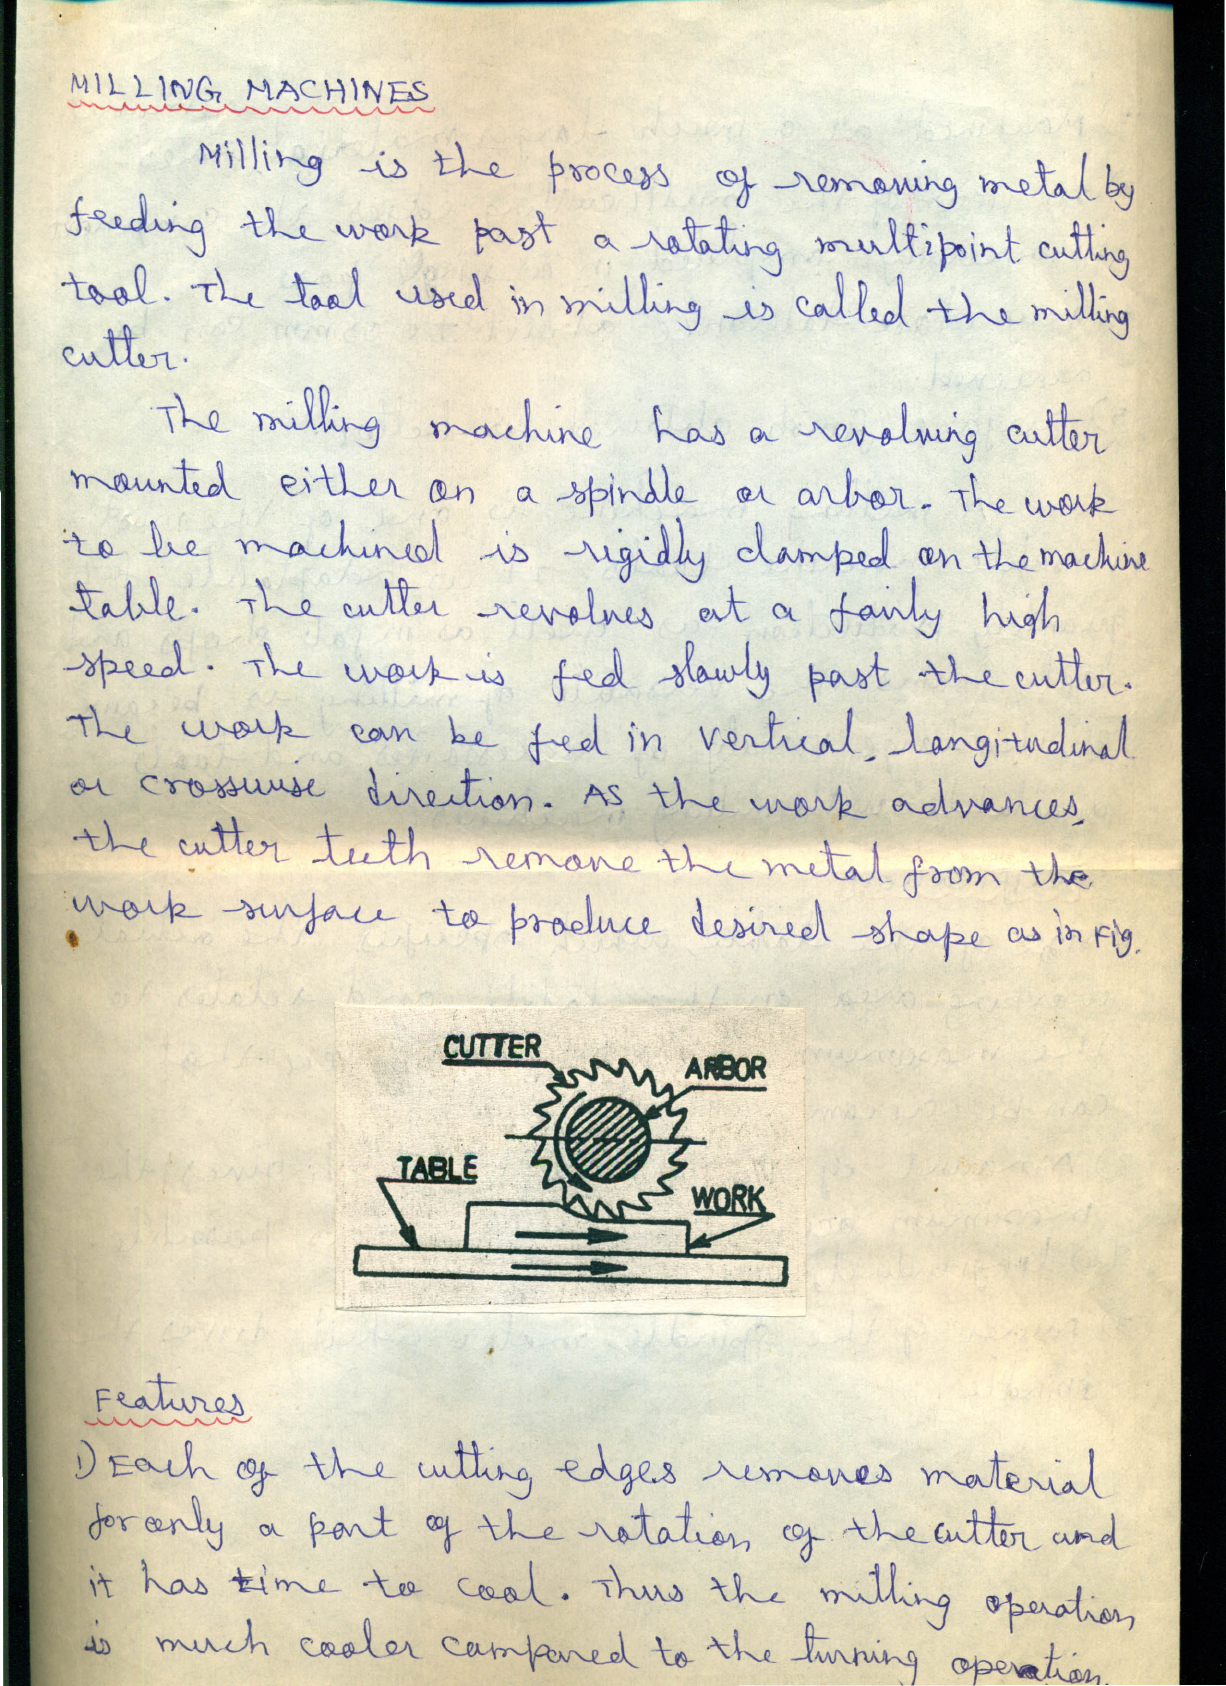 MILLING MACHINES
Milling is the process of removing metal by
feeding the work past a rotating multipoint cutting
tool. The tool used in milling is called the milling
cutter.
The milling machine has a revolving cutter
mounted either on a spindle or arbor. The work
to be machined is rigidly clamped on the machine
table. The cutter revolves at a fairly high
speed. The work is fed slowly past the cutter.
The work can be fed in vertical, longitudinal
or crosswise direction. As the work advances,
the cutter teeth remove the metal from the
work surface to produce desired shape as in Fig.
CUTTER
ARBOR
TABLE
WORK
Features
1) Each of the cutting edges removes material
for only a part of the rotation of the cutter and
it has time to cool. Thus the milling operation
is much cooler compared to the turning operation.